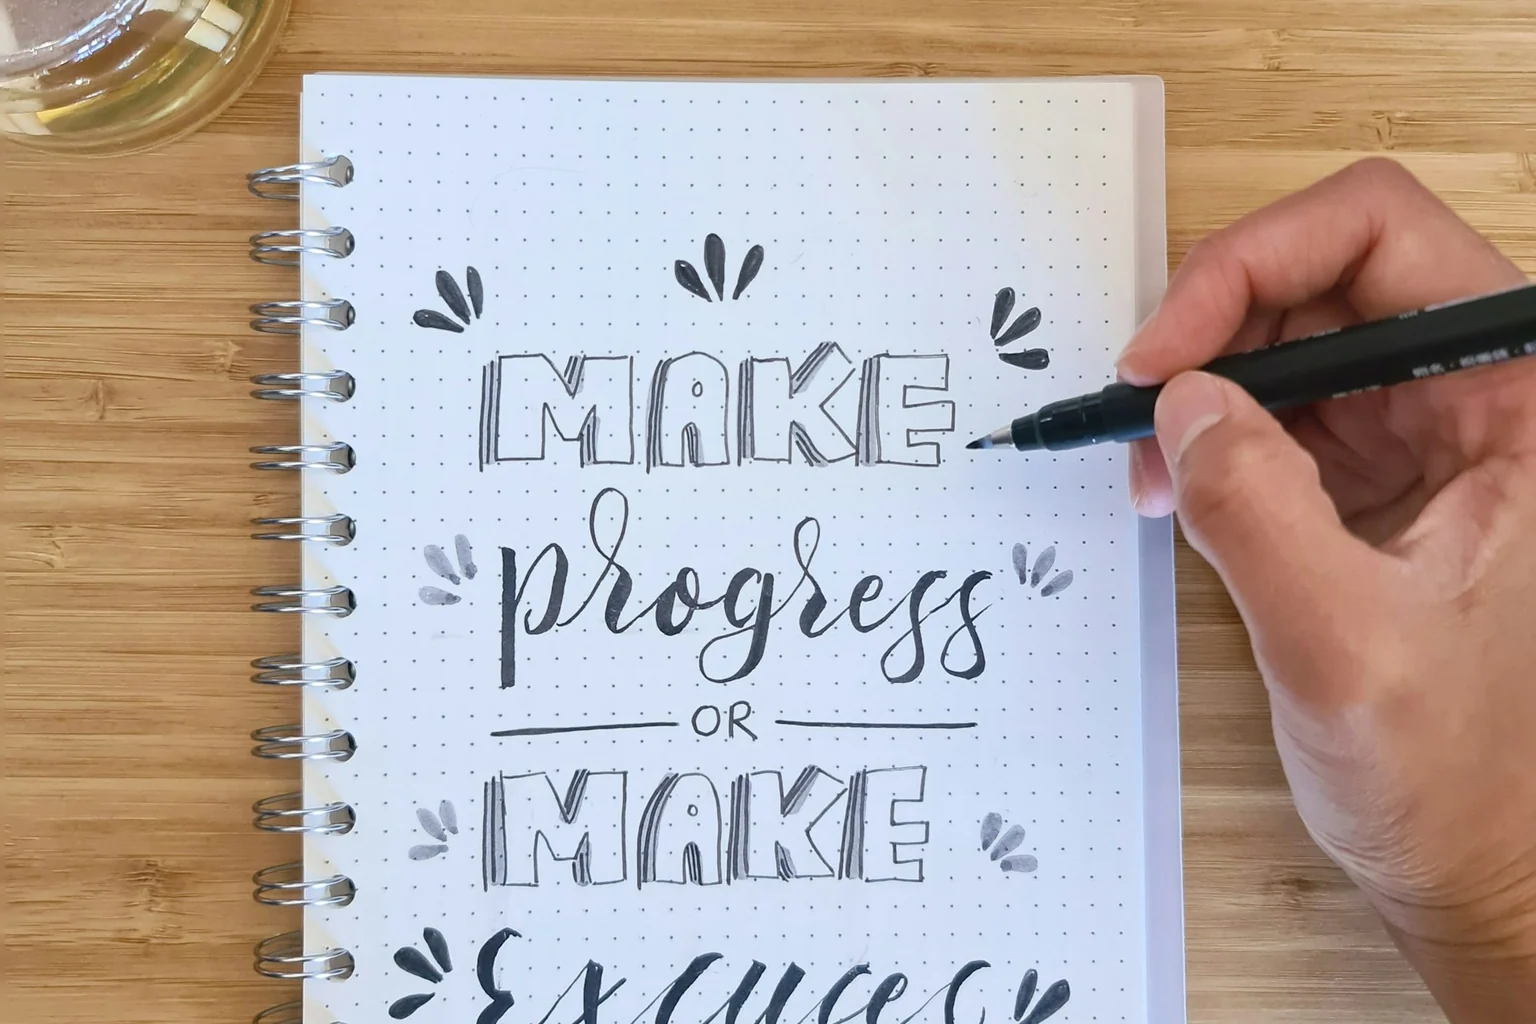 MAKE
progress
OR
MAKE
Excuses